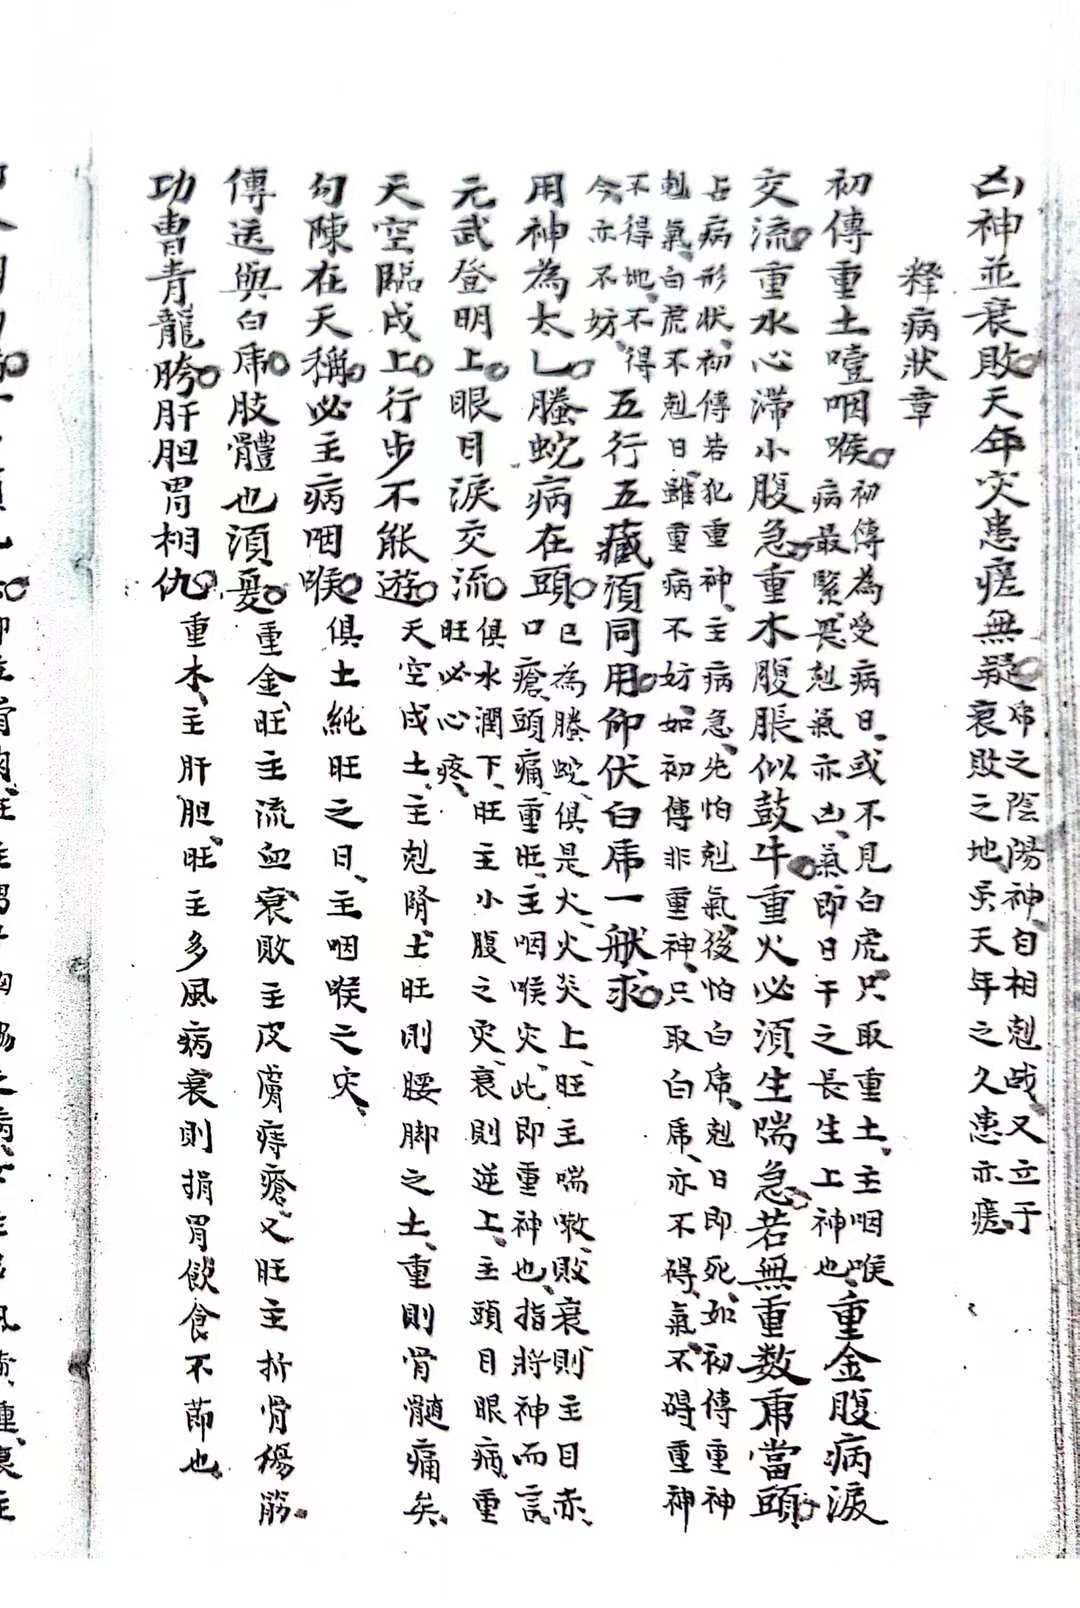 凶神並衰敗天年灾患瘥無疑
虎之陰陽神自相剋战又立于
衰敗之地、灾天年之久患亦瘥
釋病狀章
初傳重土噎咽喉
初傳為受病日、或不見白虎、只取重土、主咽喉
病最緊、畏剋氣亦凶、氣即日干之長生上神也、
重金腹病淚
交流重水心滞小腹急重木腹脹似鼓牛重火必須生喘急若無重数虎當頭
占病形状、初傳若犯重神、主病急、先怕剋氣、後怕白虎、剋日即死、如初傳重神
剋氣、白虎不剋日、雖重病不妨、如初傳非重神、只取白虎、亦不碍、氣不碍重神
不得地、不得
今亦不妨、
五行五藏須同用仰伏白虎一般求
用神為太乚螣蛇病在頭
巳為螣蛇、俱是火、火炎上、旺主喘嗽、敗衰則主目赤、
口瘡、頭痛、重旺、主咽喉灾、此即重神也、指將神而言
元武登明上眼目淚交流
俱水潤下、旺主小腹之灾、衰則逆上、主頭目眼病、重
旺必心疼、
天空臨戌上行步不能遊
天空戌土、主剋腎、土旺則腰脚之土、重則骨髓痛矣、
勾陳在天稱必主病咽喉
俱土純旺之日、主咽喉之灾、
傳送與白虎肢體也須憂
重金、旺主流血、衰敗主皮膚痔瘡、又旺主折骨傷筋、
功曹青龍胯肝胆胃相仇
重木、主肝胆、旺主多風病衰則損胃飲食不節也